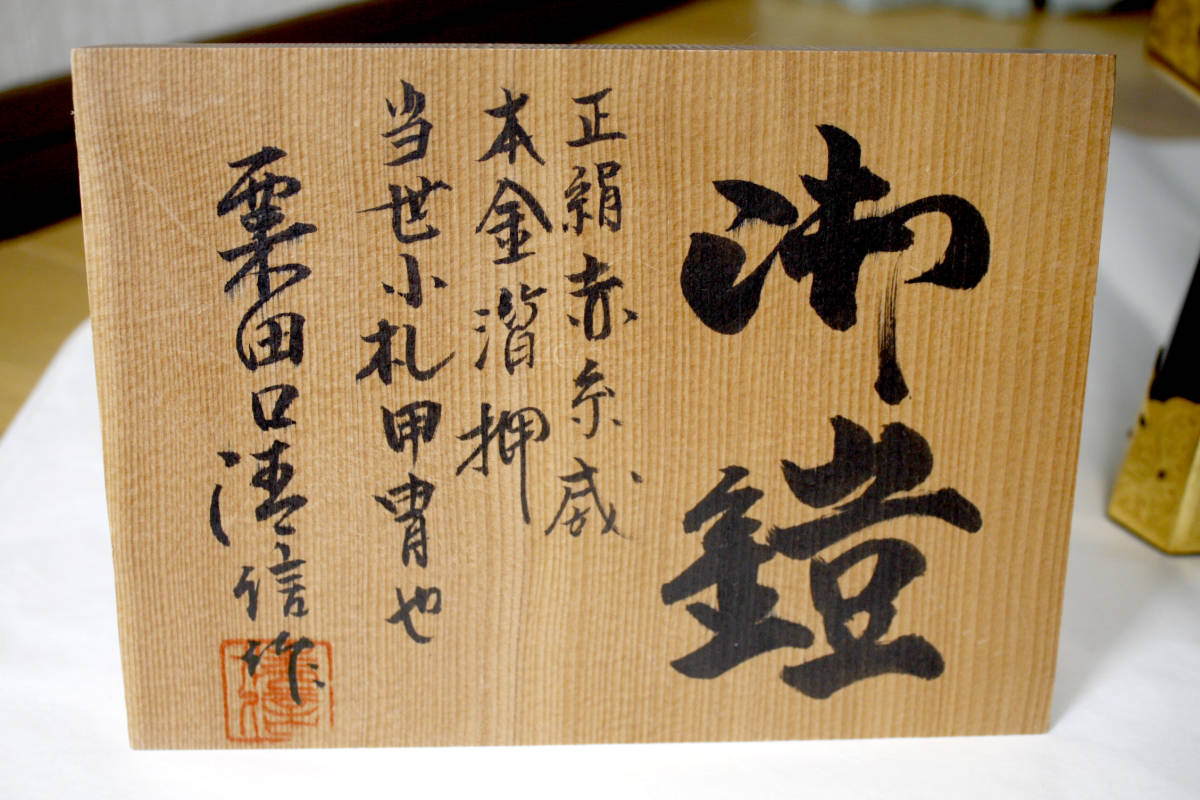 御鎧
正絹赤糸威
本金箔押
当世小札甲冑也
粟田口清信作